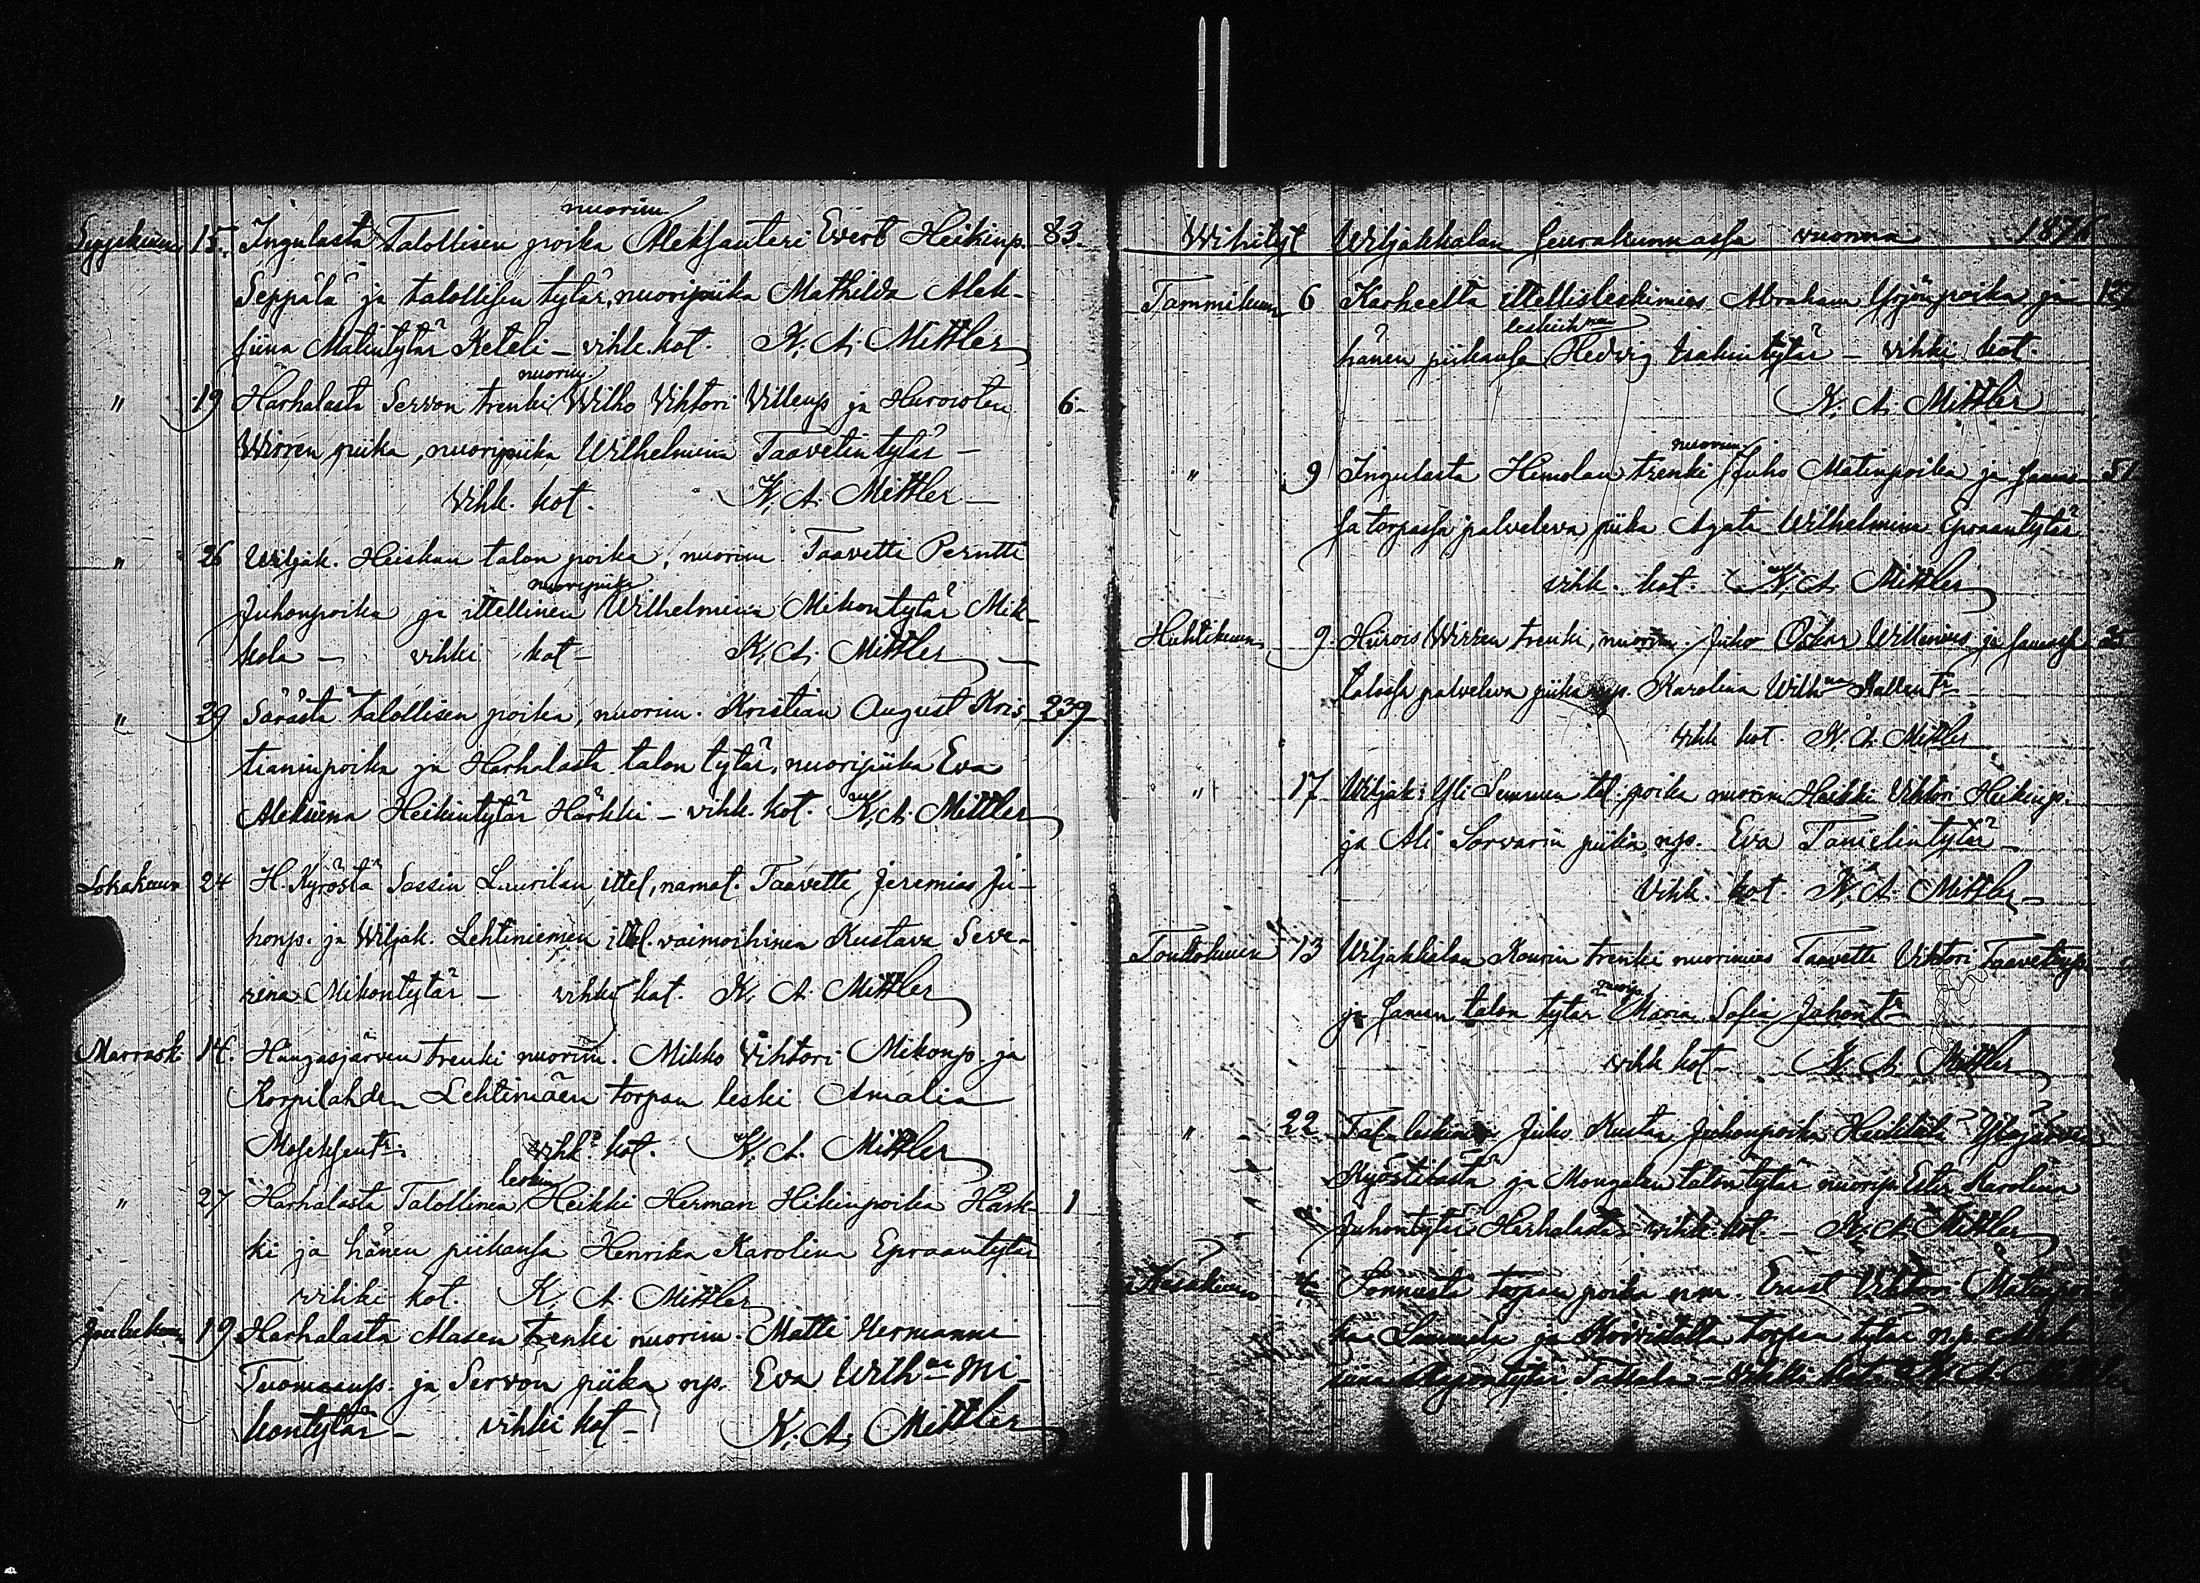 nuorim.
Syyskuun 15. Ingulasta Talollisen poika Aleksanteri Evert Heikinp. 83.
Seppälä ja talollisen tytär, nuoripiika Mathilda Alek-
siina Matintytär Keteli – vihk. kot. K. A. Mittler
nuorim.
" 19 Harhalasta Servon trenki Wilho Vihtori Villenp. ja Huroisten 6.
Wirren piika, nuoripiika Wilhelmiina Taavetintytär –
vihk. kot. K. A. Mittler –
" 26 Wiljak. Heiskan talon poika, nuorim. Taavetti Penntti
nuoripiika
Juhonpoika ja ittellinen Wilhelmiina Mikontytär Mik-
kola – vihki kot – K. A. Mittler –
" 29 Särästä talollisen poika, nuorim. Kristian August Kris- 239
tianinpoika ja Harhalasta talon tytär, nuoripiika Eva
Aleksiina Heikintytär Härkki – vihk. kot. K. A. Mittler
Lokakuun 24 H. Kyröstä Sassin Laurilan ittel, namat. Taavetti Jeremias Ju-
honp. ja Wiljak. Lehtiniemen ittel. vaimoihinen Kustava Seve-
rina Mikontytär – vihki kot. K. A. Mittler
Marrask. 14. Hangasjärven trenki nuorim. Mikko Vihtori Mikonp. ja
Korpilahden Lehtimäen torpan leski Amalia
Moseksentr. vihk. kot. K. A. Mittler
leskim
" 27 Harhalasta Talollinen Heikki Herman Heikinpoika Härk- 1
ki ja hänen piikansa Henrika Karolina Epraantytär
vihki kot. K. A. Mittler
Joulukuun 19 Harhalasta Masen trenki nuorim. Matti Hermanni
Tuomaanp. ja Servon piika np. Eva Wilhna Mi-
kontytär – vihki kot – K. A. Mittler
Wihityt Wiljakkalan seurakunnassa vuonna 187
Tammikuun 6 Karheelta ittellisleskimies Abraham Yrjönpoika ja
hänen piikansa Hedvig Isakintytär – vihki kot.
K. A. Mittler
nuorim.
" 9 Ingulasta Himolan trenki Juho Matinpoika ja samas- 51
sa torpassa palveleva piika Agata Wilhelmina Epraantytär
vihk. kot. K. A. Mittler
Huhtikuun 9. Hurois Wirren trenki, nuorim. Juho Oskar Willenius ja samassa
talossa palveleva piika np. Karolina Wilhna Kallentr
vihk kot. K. A. Mittler
" 17 Wiljak. Yli Sennun tal. poika nuorim Heikki Vihtori Heikinp.
ja Ali Sorvarin piika, np. Eva Tanielintytär –
Vihk. kot. K. A. Mittler –
Toukokuun 13 Wiljakkalan Kourin trenki nuorimies Taavetti Vihtori Taavetinp.
nuorip.
ja saman talon tytär Maria Sofia Juhontr
vihk kot – K. A. Mittler
" 22 Tal. leskimies Juho Kusta Juhonpoika Ylöjärven
Kyöstilästä ja Mongalen talon tytär nuorip. Ester Karolina
Juhontytär Harhalasta vihk. kot. – K. A. Mittler
Kesäkuun 4 torpan poika nm. Ernst Vihtori Matinpoi-
ka ja torpan tytär n.p. Alek-
siina – vihki kot. K. A. Mittler